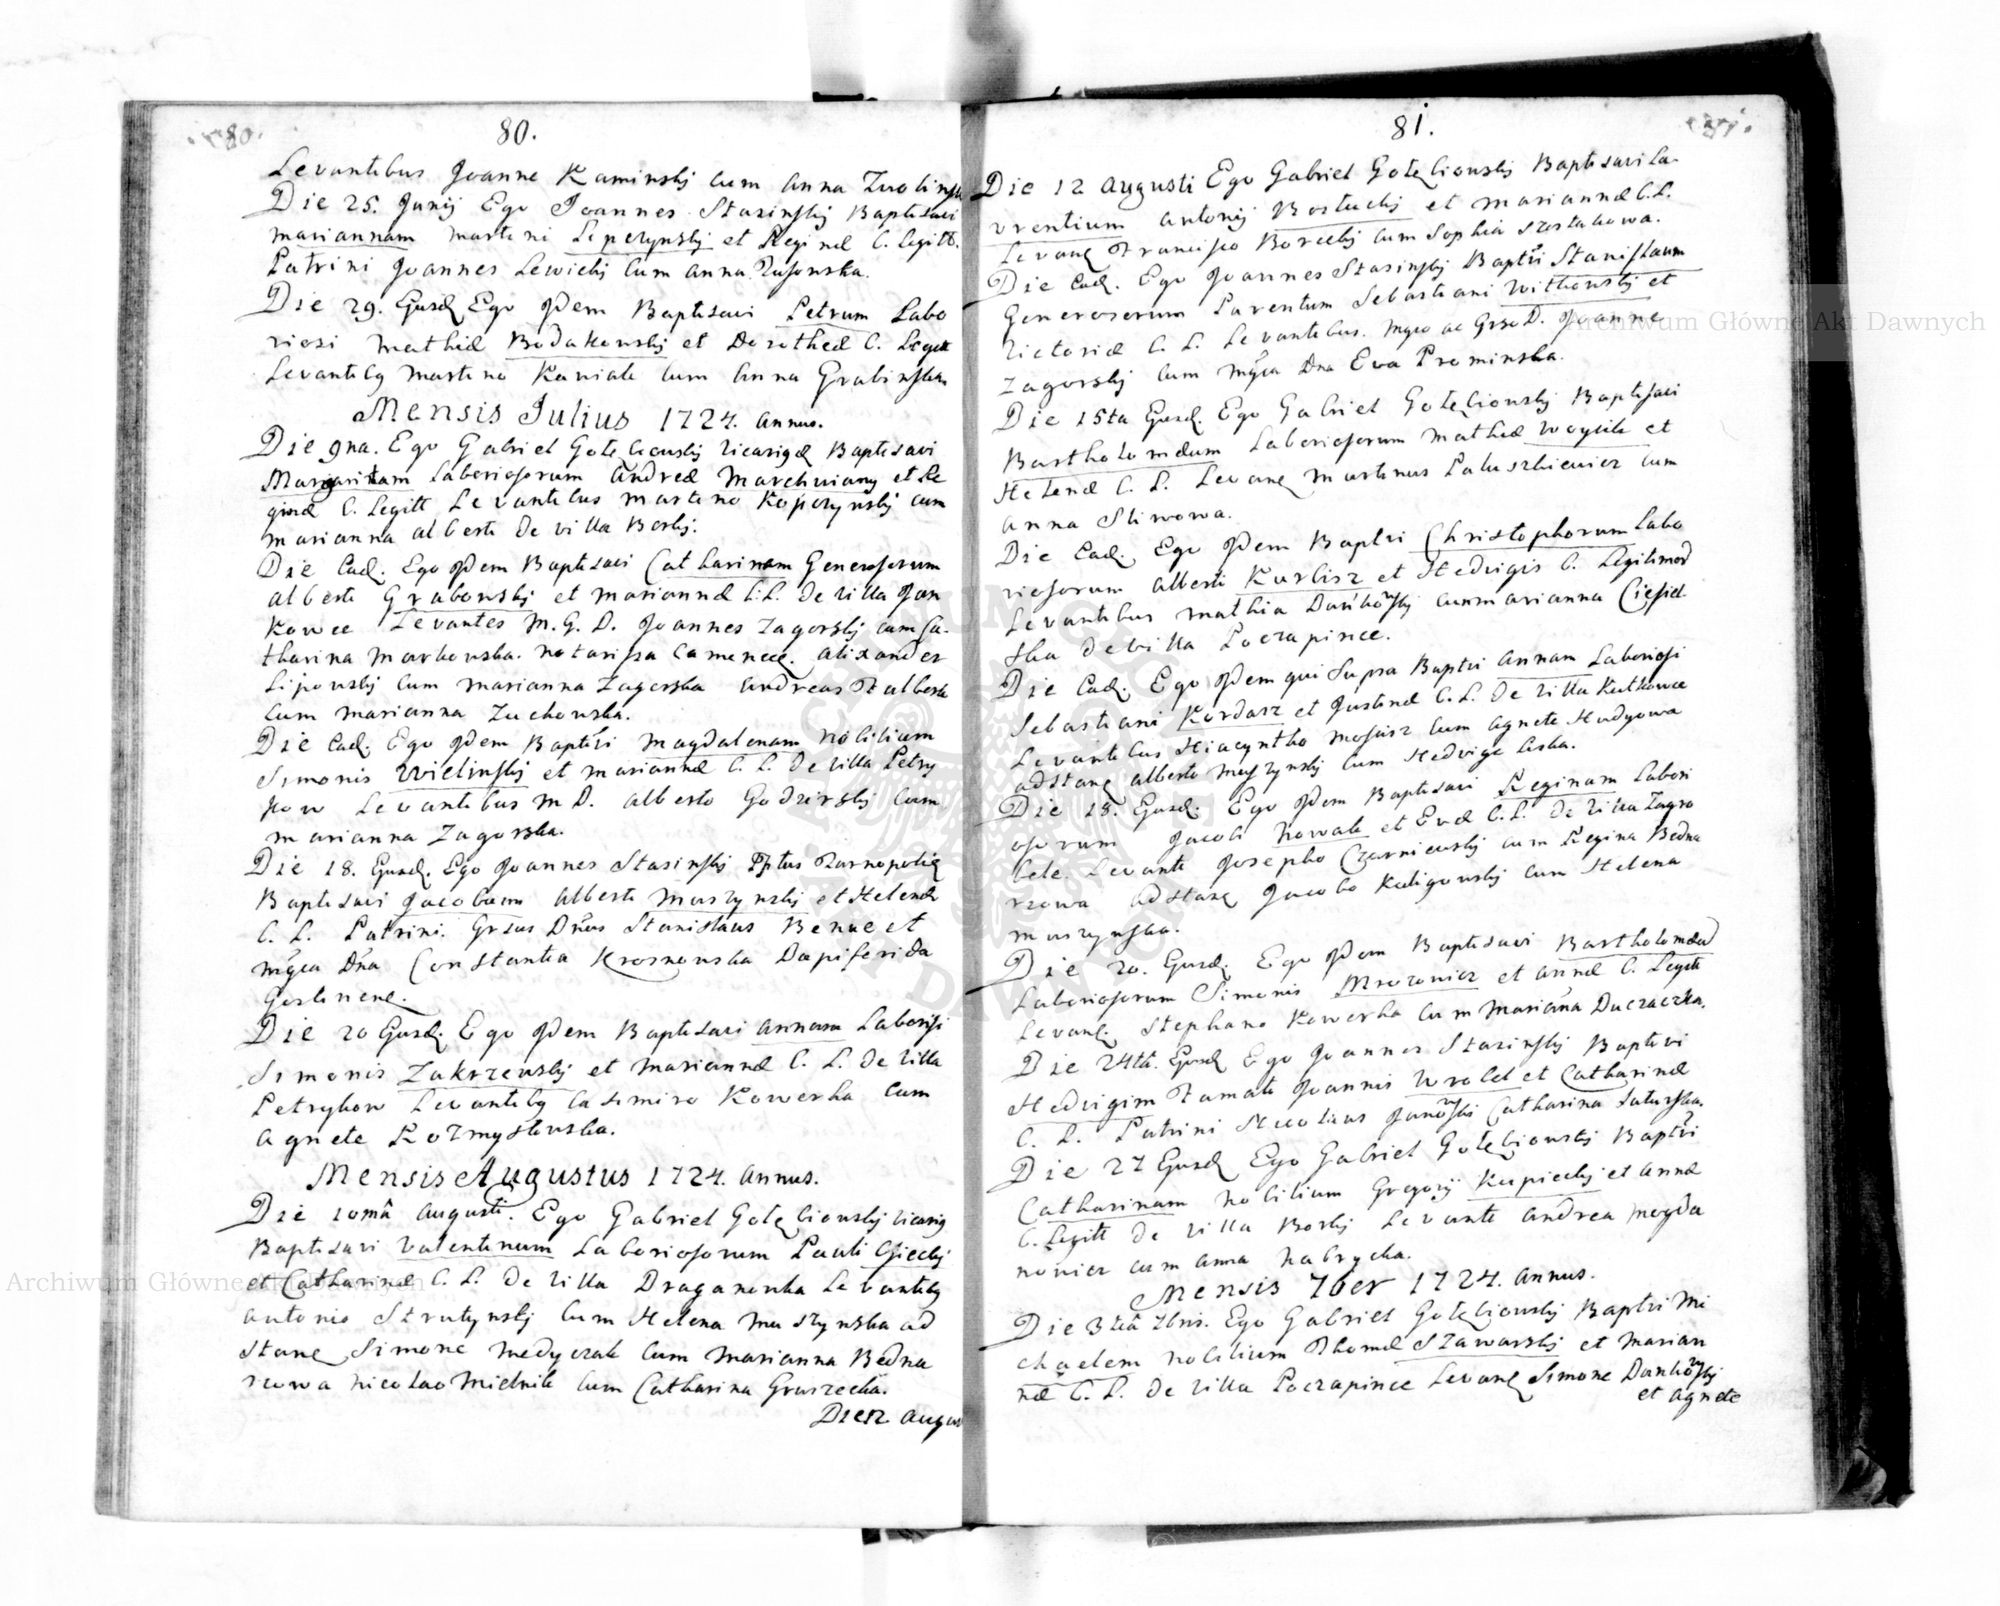 80.
Levantibus Joanne Kaminskij cum Anna Zwolinska
Die 25. Junij Ego Joannes Stasinskij Baptisavi
Mariannam Martini Lepczynskij et Reginæ C. Legitt.
Patrini Joannes Lewickij cum Anna
Die 29. Ejusd Ego Idem Baptisavi Petrum Labo
riosi Mathiæ Bodakowskij et Dorotheæ C. Legitt
Levantibq Martino Kawiak cum Anna Grabinska
Mensis Julius 1724. Annus.
Die 9na. Ego Gabriel Gołębiowskij Vicarig Baptisavi
Margaritam Laboriosorum Andreæ Marchwiany et Re
ginæ C. Legitt Levantibus Martino Kopczynskij cum
Marianna Alberti de villa Borkij.
Die Ead. Ego Idem Baptisavi Catharinam Generosorum
Alberti Grabowskij et Mariannæ C. L. De Villa Jan
kowce Levantes M. G. D. Joannes Zagorskij cum Ca-
tharina Markowska. Notarissa Camenec. Alixander
Lipowskij cum Marianna Zagorska Andreas
cum Marianna Zuchowska.
Die Ead. Ego Idem Baptvi Magdalenam Nobilium
Simonis Wielinskij et Mariannæ C. L. De Villa Petry
kow Levantibus M D. Alberto Godzirskij cum
Marianna Zagorska.
Die 18. Ejusd. Ego Joannes Stasinskij Pptus Tarnopolig
Baptisavi Jacobum Alberti Muszynskij et Helenæ
C. L. Patrini. Grsus Dnus Stanislaus Benue et
Mgca Dna Constantia Krosnowska Dapiferida
Gostinene.
Die 20 Ejusd. Ego Idem Baptisavi Annam Laboriosi
Simonis Zakrzewskij et Mariannæ C. L. De Villa
Petrykow Levantibq Casimiro Kowerka cum
Agnete Rozmyslowska.
Mensis Augustus 1724. Annus.
Die 10ma Augusti. Ego Gabriel Gołębiowskij Vicarig
Baptisavi Valentinum Laboriosorum Pauli Osieckij
et Catharinæ C. L. De Villa Draganowka Levantibq
Antonio Strutynskij cum Helena Muszynska ad
stanę Simone Medyczak cum Marianna Bedna
rzowa Nicolao Mielnik cum Catharina Gruszecka.
Die 12 Augus
81.
Die 12 Augusti Ego Gabriel Gołębiowskij Baptisavi La-
vrentium Antonij Rostuckij et Mariannæ C. L.
Levanę Francisco Boreckij cum Sophia Szostakowa.
Die Ead. Ego Joannes Stasinskij Baptvi Stanislaum
Generosorum Parentum Sebastiani Witkowskij et
Victoriæ C. L. Levantibus. Mgco ac Grso D. Joanne
Zagorskij cum Mgca Dna Eva Prominska.
Die 15ta Ejusd. Ego Gabriel Gołębiowskij Baptisavi
Bartholomæum Laboriosorum Mathiæ Woycik et
Helenæ C. L. Levanę Martinus Paluszkiewicz cum
Anna Sliwowa.
Die Ead. Ego Idem Baptvi Christophorum Labo
riosorum Alberti Kurlisz et Hedvigis C. Legitimor
Levantibus Mathia Dankowskij cum Marianna Ciesiel
ska de villa Poczapince.
Die Ead. Ego Idem qui supra Baptvi Annam Laboriosi
Sebastiani Kordasz et Justinæ C. L. De Villa Kutkowce
Levantibus Hiacyntho Mosiusz cum Agnete Hudyowa
adstanę Alberto Muszynskij cum Hedvige Liska.
Die 18. Ejusd. Ego Idem Baptisavi Reginam Labori
osorum Jacobi Nowak et Evæ C. L. De Villa Zagro
bele. Levante Josepho Czarnieuskij cum Regina Bedna
rzowa adstanę Jacobo Kuligowskij cum Helena
Muszynska.
Die 20. Ejusd. Ego Idem Baptisavi Bartholomæu
Laboriosorum Simonis Mrozowicz et Annæ C. Legitt
Levanę. Stephano Kowerka cum Marianna Duczaczka.
Die 24ta. Ejusd Ego Joannes Stasinskij Baptivi
Hedvigim Famati Joannis Wrobel et Catharinæ
C. L. Patrini Nicolaus Janowski Catharina Saturska.
Die 27 Ejusd Ego Gabriel Gołębiowskij Baptvi
Catharinam Nobilium Gregorij Kupieckij et Annæ
C. Legitt De Villa Borkij Levante Andrea Magda
nowicz cum Anna Nabrycka.
Mensis 7ber 1724. Annus.
Die 3tia 7bris. Ego Gabriel Gołębiowskij Baptvi Mi
chaelem Nobilium Thomæ Szawarskij et Marian
næ C. L. De Villa Poczapince Levanę Simone Dankowskij
et Agnete
Archiwum Główne Akt Dawnych
Archiwum Główne Akt Dawnych